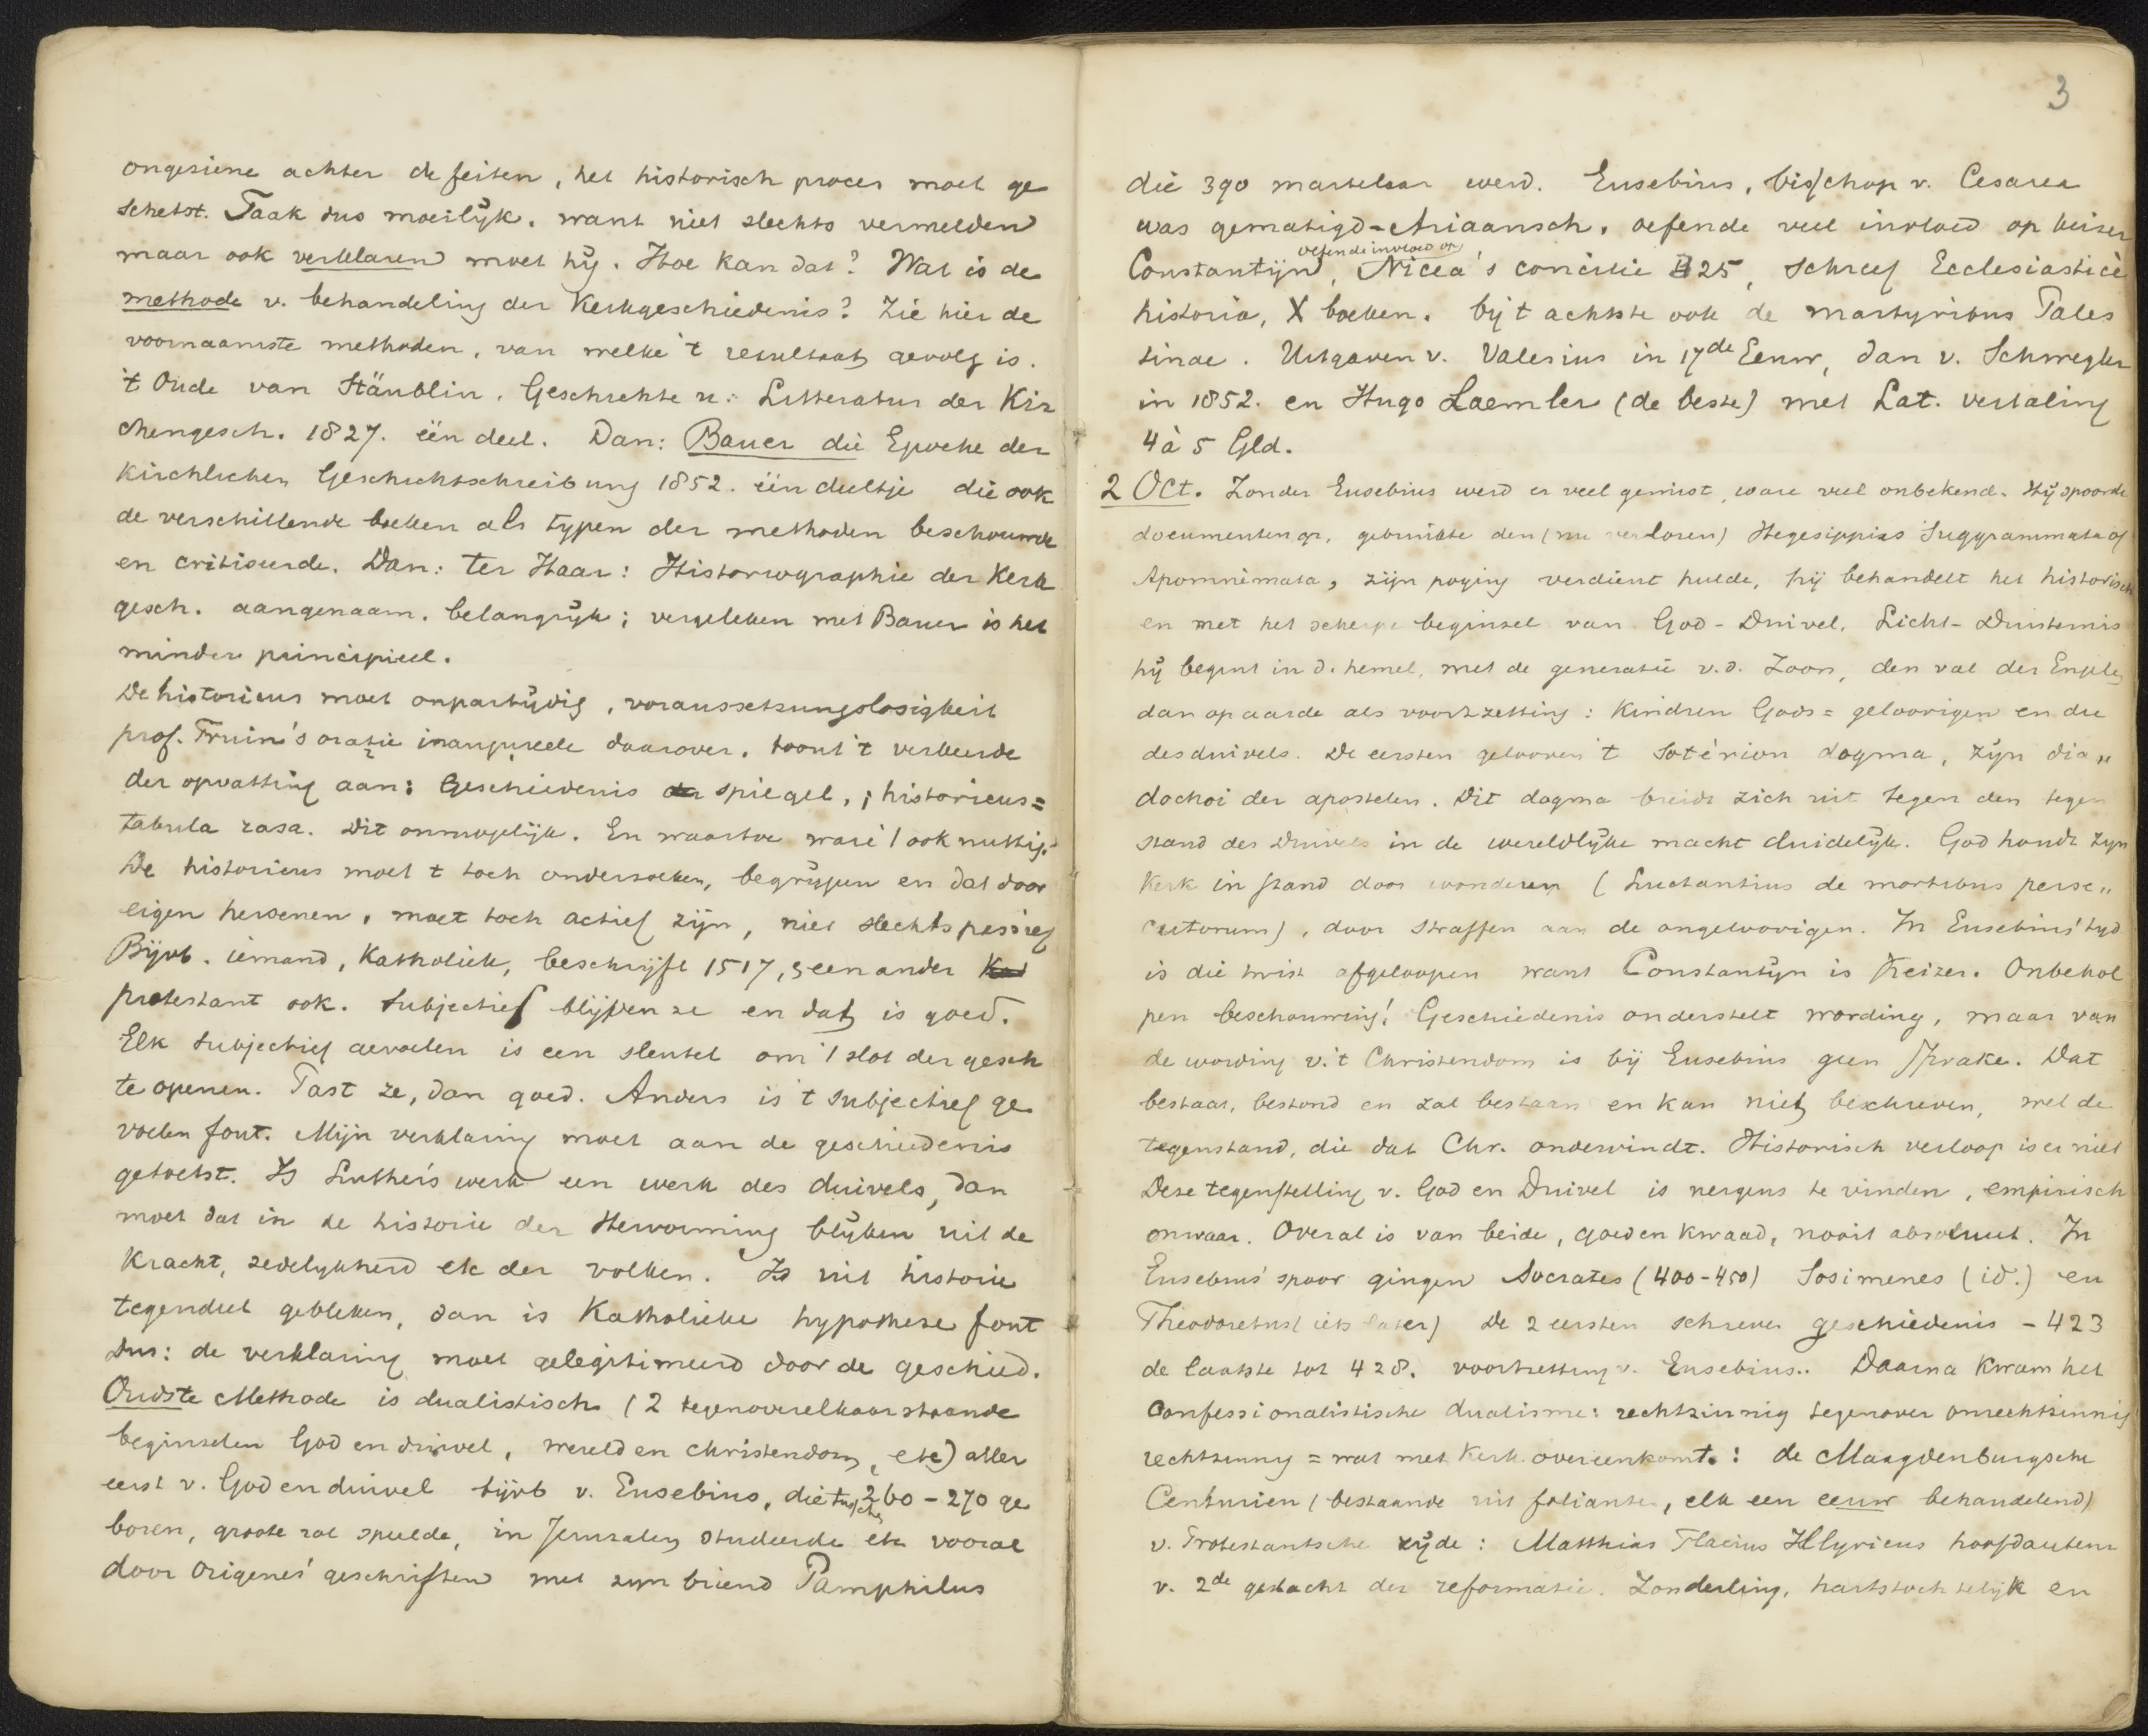 ongeziene achter de feiten, het historisch proces moet ge
schetst. Taak dus moeilijk. want niet slechts vermelden
maar ook verklaren moet hij. Hoe kan dat? Wat is de
methode v. behandeling der Kerkgeschiedenis? Zie hier de
voornaamste methoden, van welke 't resultaat gevolg is.
't Oude van Stäublin. Geschichte u: Litteratur der Kir
chengesch. 1827. één deel. Dan: Bauer die Epoche der
Kirchlichen Geschichtschreibung 1852. één deeltje die ook
de verschillende boeken als typen der methoden beschouwde
en critiseerde. Dan: ter Haar: Historiographie der Kerk
gesch. aangenaam. belangrijk; vergeleken met Bauer is het
minder principieel.
De historicus moet onpartijdig, voraussetzungslosigkeit
prof. Fruin's oratie inaugureele daarover. toont 't verkeerde
der opvatting aan: Geschiedenis spiegel, ; historicus =
tabula rasa. Dit onmogelijk. En waartoe ware 't ook nuttig?
De historicus moet t toch onderzoeken, begrijpen en dat door
eigen hersenen, moet toch actief zijn, niet slechts passief
Bijvb. iemand, Katholiek, beschrijft 1517, een ander
protestant ook. Subjectief blijven ze en dat is goed.
Elk subjectief gevoelen is een sleutel om 't slot der gesch
te openen. Past ze, dan goed. Anders is 't subjectief ge
voelen fout. Mijn verklaring moet aan de geschiedenis
getoetst. Is Luther's werk een werk des duivels, dan
moet dat in de historie der Hervorming blijken uit de
Kracht, zedelijkheid etc der volken. Is uit historie
tegendeel gebleken, dan is Katholieke hypothese fout
Dus: de verklaring moet gelegitimeerd door de geschied.
Oudste Methode is dualistisch (2 tegenoverelkaarstaande
beginselen God en duivel, wereld en christendom, etc) aller
eerst v. God en duivel bijvb v. Eusebius, die tusschen 260 - 270 ge
boren, groote rol speelde, in Jeruzalem studeerde etc vooral
door Origenes' geschriften met zijn vriend Pamphilus
3
die 390 martelaar werd. Eusebius, bisschop v. Cesarea
was gematigd-Ariaansch. oefende veel invloed op keizer
oefende invloed op
Constantijn, Nicea's concilie 325, schreef Ecclesiasticè
historia, X boeken. bij t achtste ook de martyribus Pales
tinae. Uitgaven v. Valesius in 17de Eeuw, dan v. Schwegler
in 1852. en Hugo Laemler (de beste) met Lat. vertaling
4 à 5 Gld.
2 Oct. Zonder Eusebius werd er veel gemist, ware veel onbekend. Hij spoorde
documenten op, gebruikte den (nu verloren) Hegesippius Suggrammata of
Apomnèmata, zijn poging verdient hulde, hij behandelt het historisch
en met het scherpe beginsel van God - Duivel, Licht - Duisternis
hij begint in d. hemel, met de generatie v.d. Zoon, den val der Engelen
dan op aarde als voortzetting: Kindren Gods = geloovigen en die
des duivels. De eersten gelooven 't Sotèrion dogma, zijn dia„
dochoi der apostelen. Dit dogma breidt zich uit tegen den tegen
stand des Duivels in de wereldlijke macht duidelijk. God houdt zijn
Kerk in stand door wonderen (Luctantius de mortibus perse„
cutorum), door straffen aan de ongeloovigen. In Eusebius' tijd
is die twist afgeloopen want Constantijn is Keizer. Onbehol
pen beschouwing! Geschiedenis onderstelt wording, maar van
de wording v. 't Christendom is bij Eusebius geen sprake. Dat
bestaat, bestond en zal bestaan en kan niet beschreven, wel de
tegenstand, die dat Chr. ondervindt. Historisch verloop is er niet
Deze tegenstelling v. God en Duivel is nergens te vinden, empirisch
onwaar. Overal is van beide, goed en kwaad, nooit absoluut. In
Eusebius' spoor gingen Socrates (400-450) Sosimenes (id.) en
Theodoretus (iets later) De 2 eersten schreven geschiedenis - 423
de laatste tot 428. voortzetting v. Eusebius.. Daarna Kwam het
Confessionalistische dualisme: rechtzinnig tegenover onrechtzinnig
rechtzinnig = wat met Kerk overeenkomt.: de Maagdenburgsche
Centuriën (bestaande uit folianten, elk een eeuw behandelend)
v. Protestantsche zijde: Matthias Flacius Illyricus hoofdauteur
v. 2de geslacht der reformatie. Zonderling, hartstochtelijk en